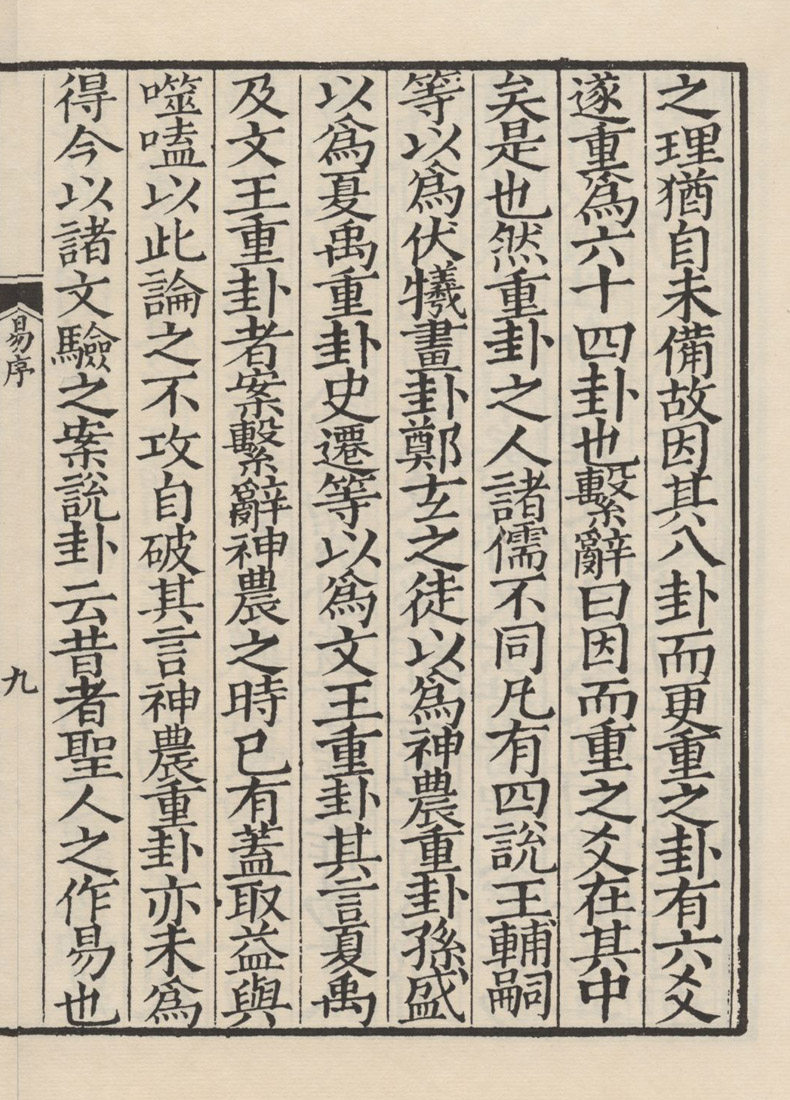 之理猶自未備故因其八卦而更重之卦有六爻
遂重為六十四卦也繫辭曰因而重之爻在其中
矣是也然重卦之人諸儒不同凡有四說王輔嗣
等以為伏犧畫卦鄭玄之徒以為神農重卦孫盛
以為夏禹重卦史遷等以為文王重卦其言夏禹
及文王重卦者案繫辭神農之時已有蓋取益與
噬嗑以此論之不攻自破其言神農重卦亦未為
得今以諸文驗之案說卦云昔者聖人之作易也
易序
九